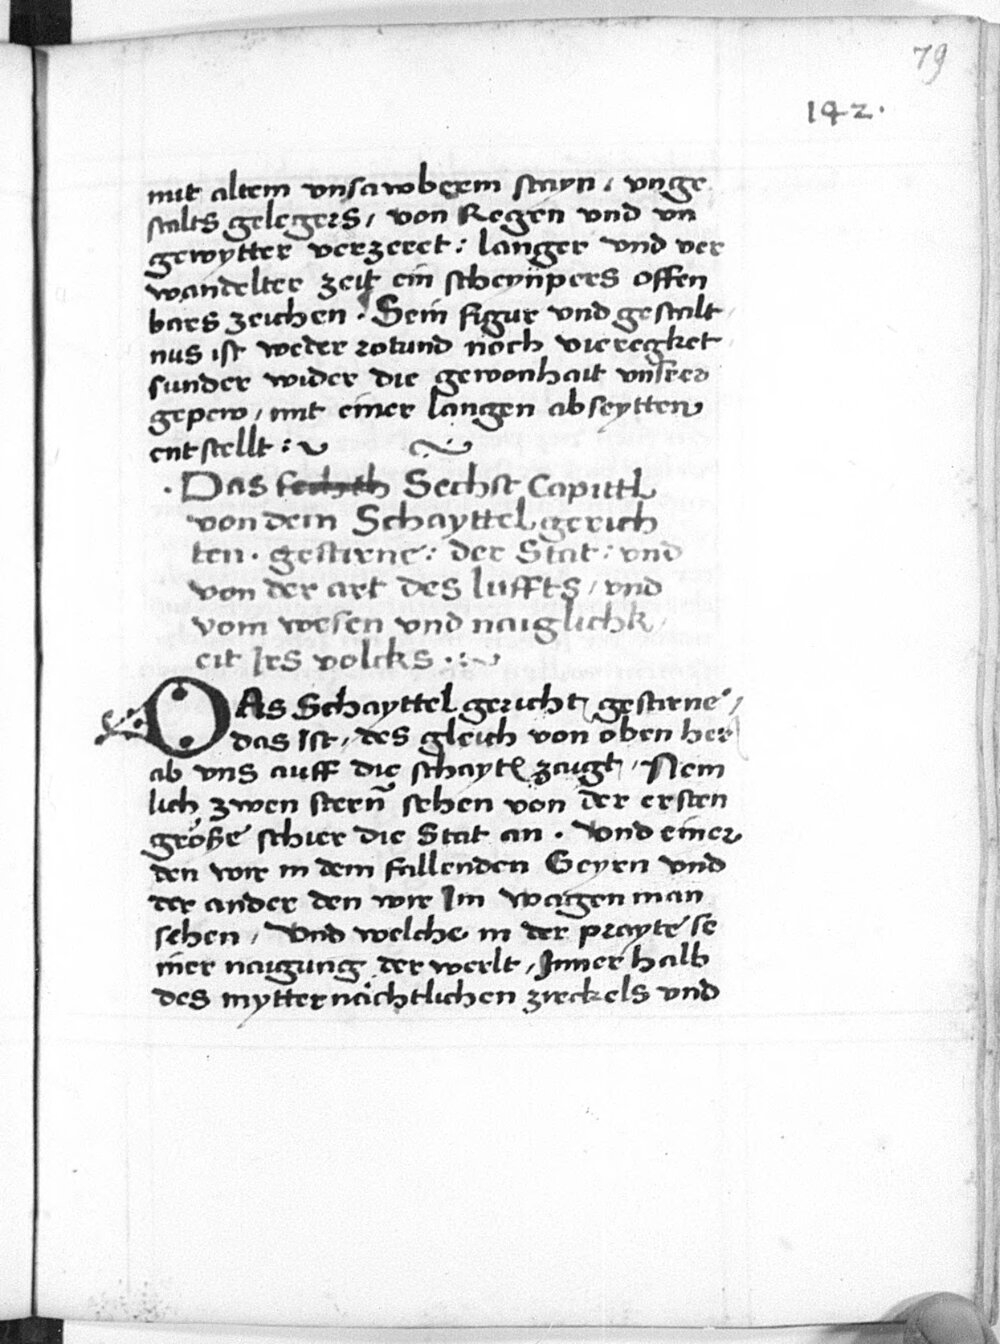 79
142.
mit altem vnsawberm stayn / vnge
stalts gelegers / von Regen vnd vn
gewytter verzeret : langer vnd ver
wandelter zeit ein scheynpers offen
bars zeichen . Sein figur vnd gestalt
nus ist weder rotund noch vieregket
sunder wider die gewonhait vnsrer
gepew / mit einer langen abseytten
entstellt :
. Das Sechst Capittl
von dem Schayttel gerich
ten . gestirne : der Stat : vnd
von der art des luffts / vnd
vom wesen vnd naiglichk
eit Irs volcks . :
DAs Schayttel gericht gestirne /
das Ist / des gleich von oben her
ab vns auff die schaytl zaigt / Nem
lich zwen stern̄ sehen von der ersten
größe schier die Stat an . Vnd einer
den wir in dem fallenden Geyrn vnd
der ander den wir Im wagen man
sehen / Vnd welche in der prayte se
iner naigung der werlt / Inner halb
des mytternächtlichen zirckels vnd